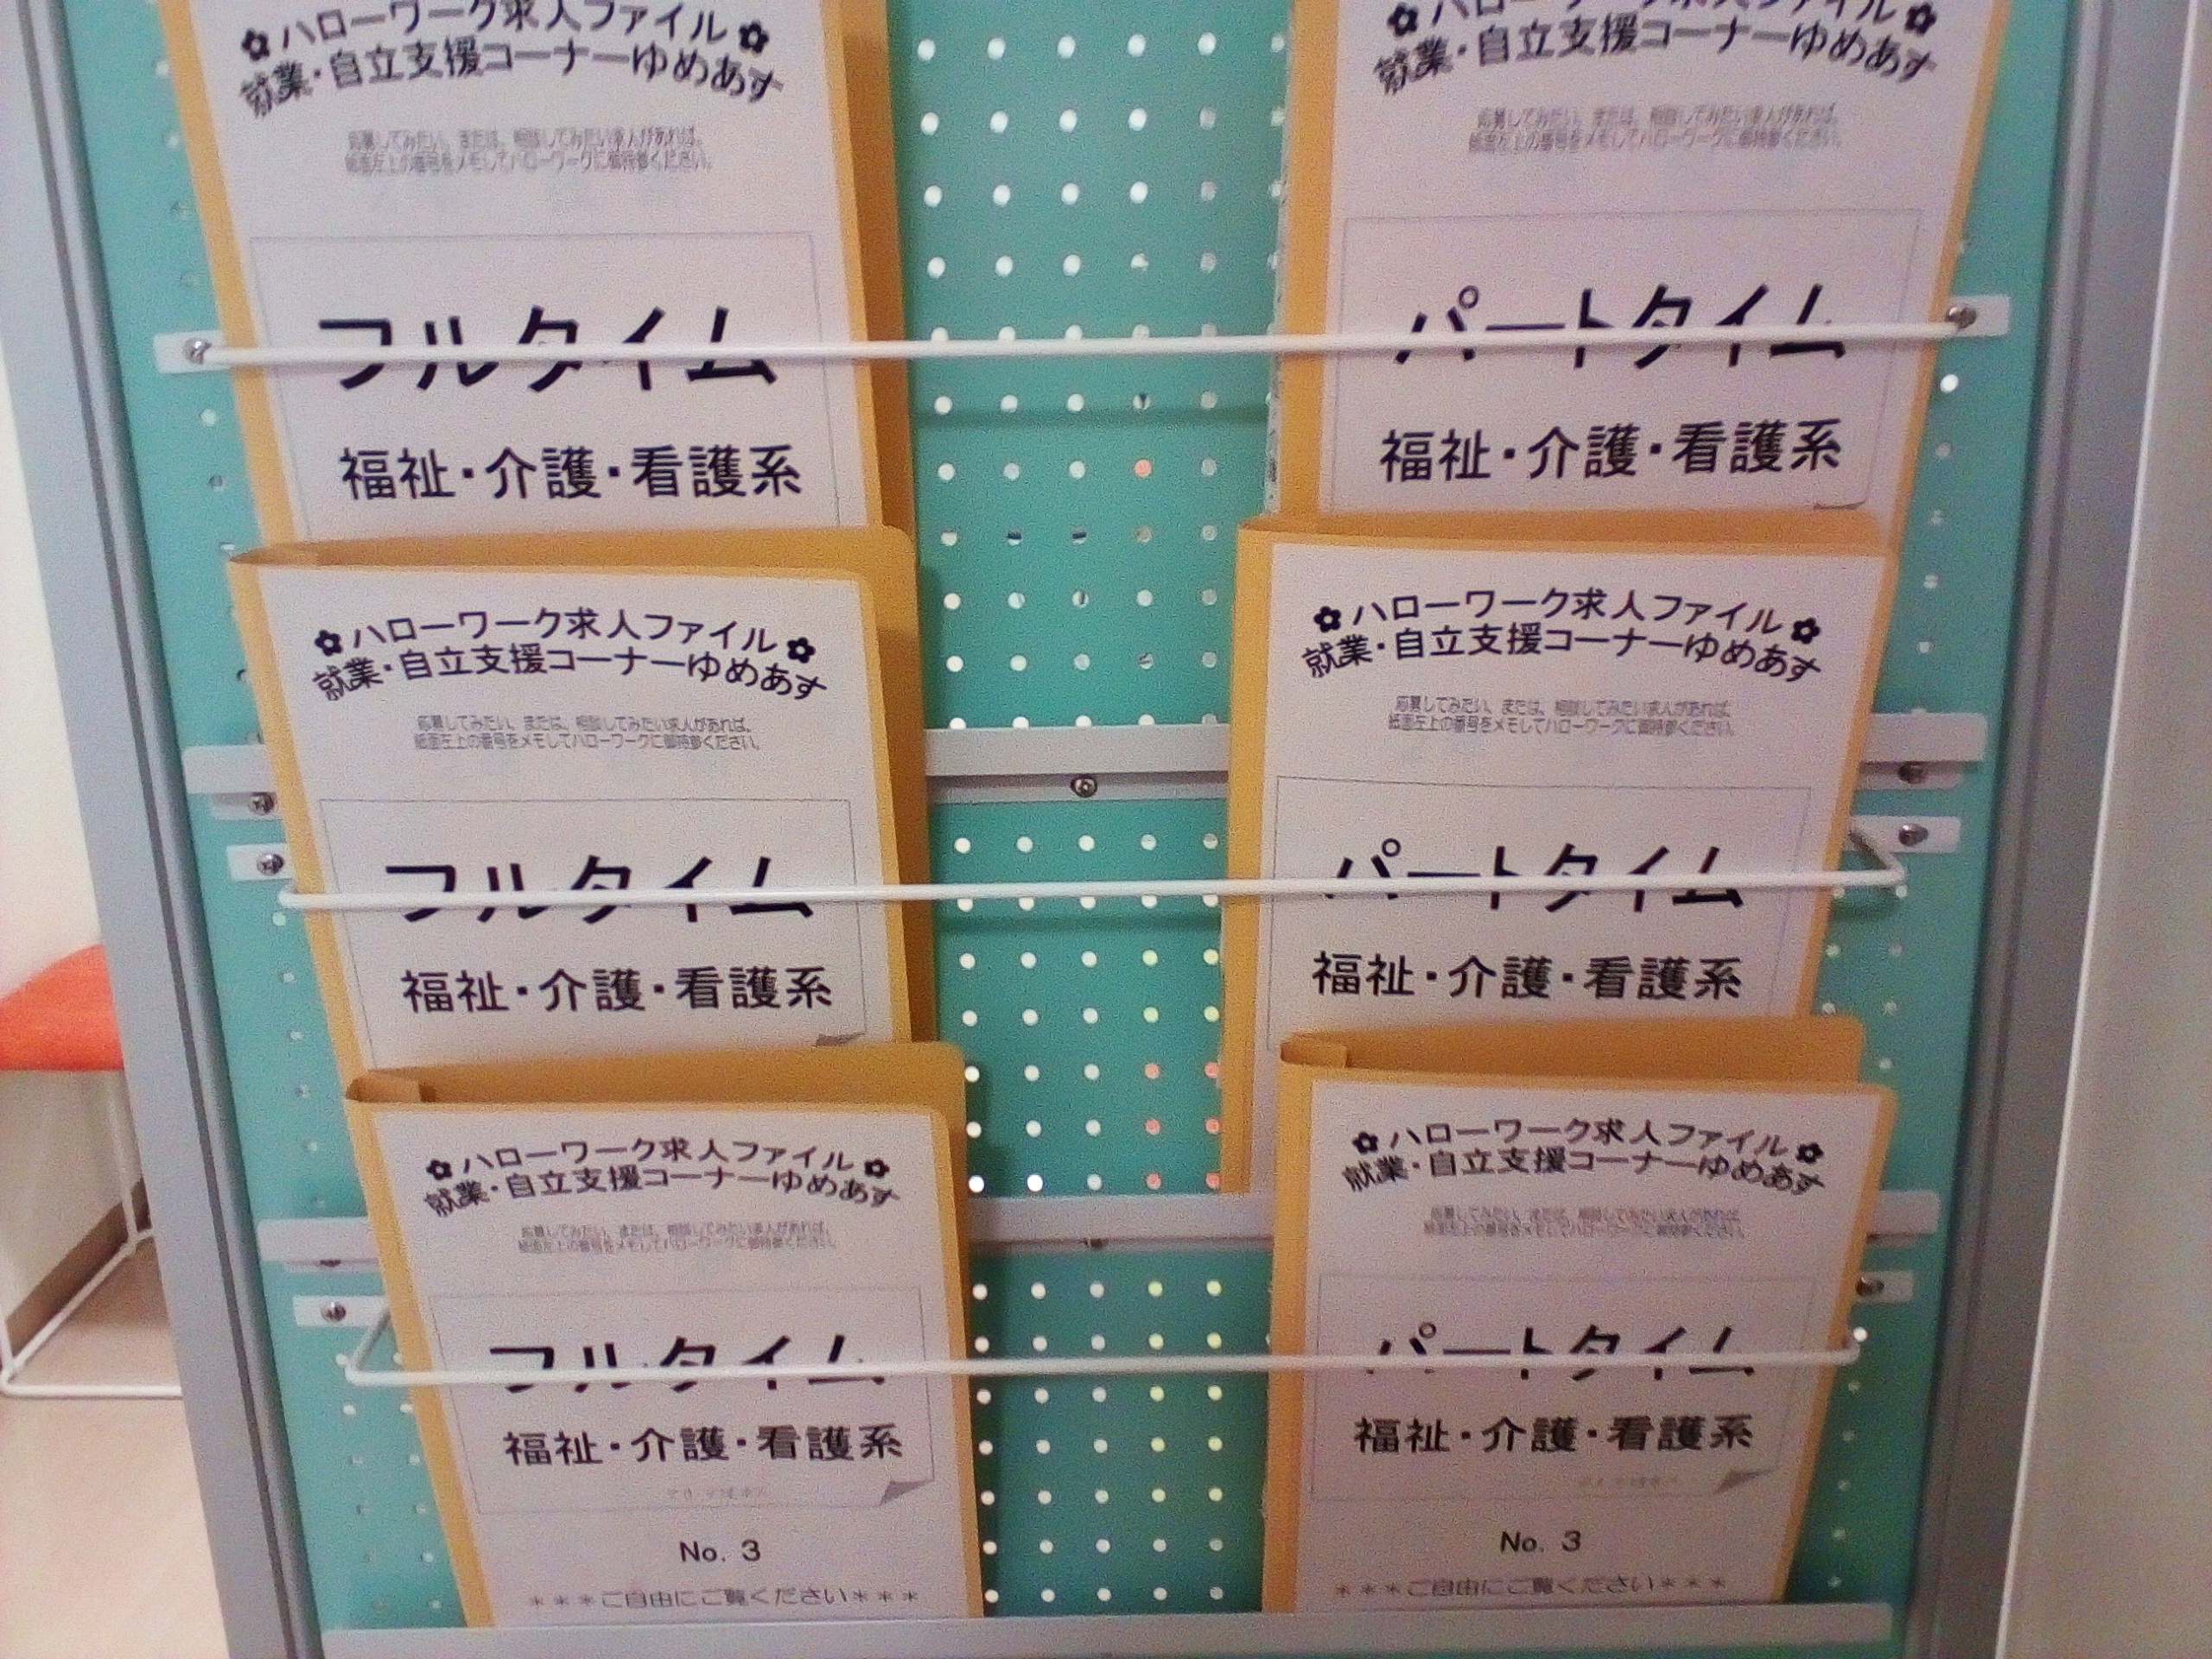 ✿ハローワーク求人ファイル✿
就業・自立支援コーナーゆめあす
応募してみたい、または、相談してみたい求人があれば、
紙面左上の番号をメモしてハローワークに御持参ください。
フルタイム
福祉・介護・看護系
✿ハローワーク求人ファイル✿
就業・自立支援コーナーゆめあす
応募してみたい、または、相談してみたい求人があれば、
紙面左上の番号をメモしてハローワークに御持参ください。
パートタイム
福祉・介護・看護系
✿ハローワーク求人ファイル✿
就業・自立支援コーナーゆめあす
応募してみたい、または、相談してみたい求人があれば、
紙面左上の番号をメモしてハローワークに御持参ください。
フルタイム
福祉・介護・看護系
✿ハローワーク求人ファイル✿
就業・自立支援コーナーゆめあす
応募してみたい、または、相談してみたい求人があれば、
紙面左上の番号をメモしてハローワークに御持参ください。
パートタイム
福祉・介護・看護系
✿ハローワーク求人ファイル✿
就業・自立支援コーナーゆめあす
応募してみたい、または、相談してみたい求人があれば、
紙面左上の番号をメモしてハローワークに御持参ください。
フルタイム
福祉・介護・看護系
No. 3
＊＊＊ご自由にご覧ください＊＊＊
✿ハローワーク求人ファイル✿
就業・自立支援コーナーゆめあす
応募してみたい、または、相談してみたい求人があれば、
紙面左上の番号をメモしてハローワークに御持参ください。
パートタイム
福祉・介護・看護系
No. 3
＊＊＊ご自由にご覧ください＊＊＊